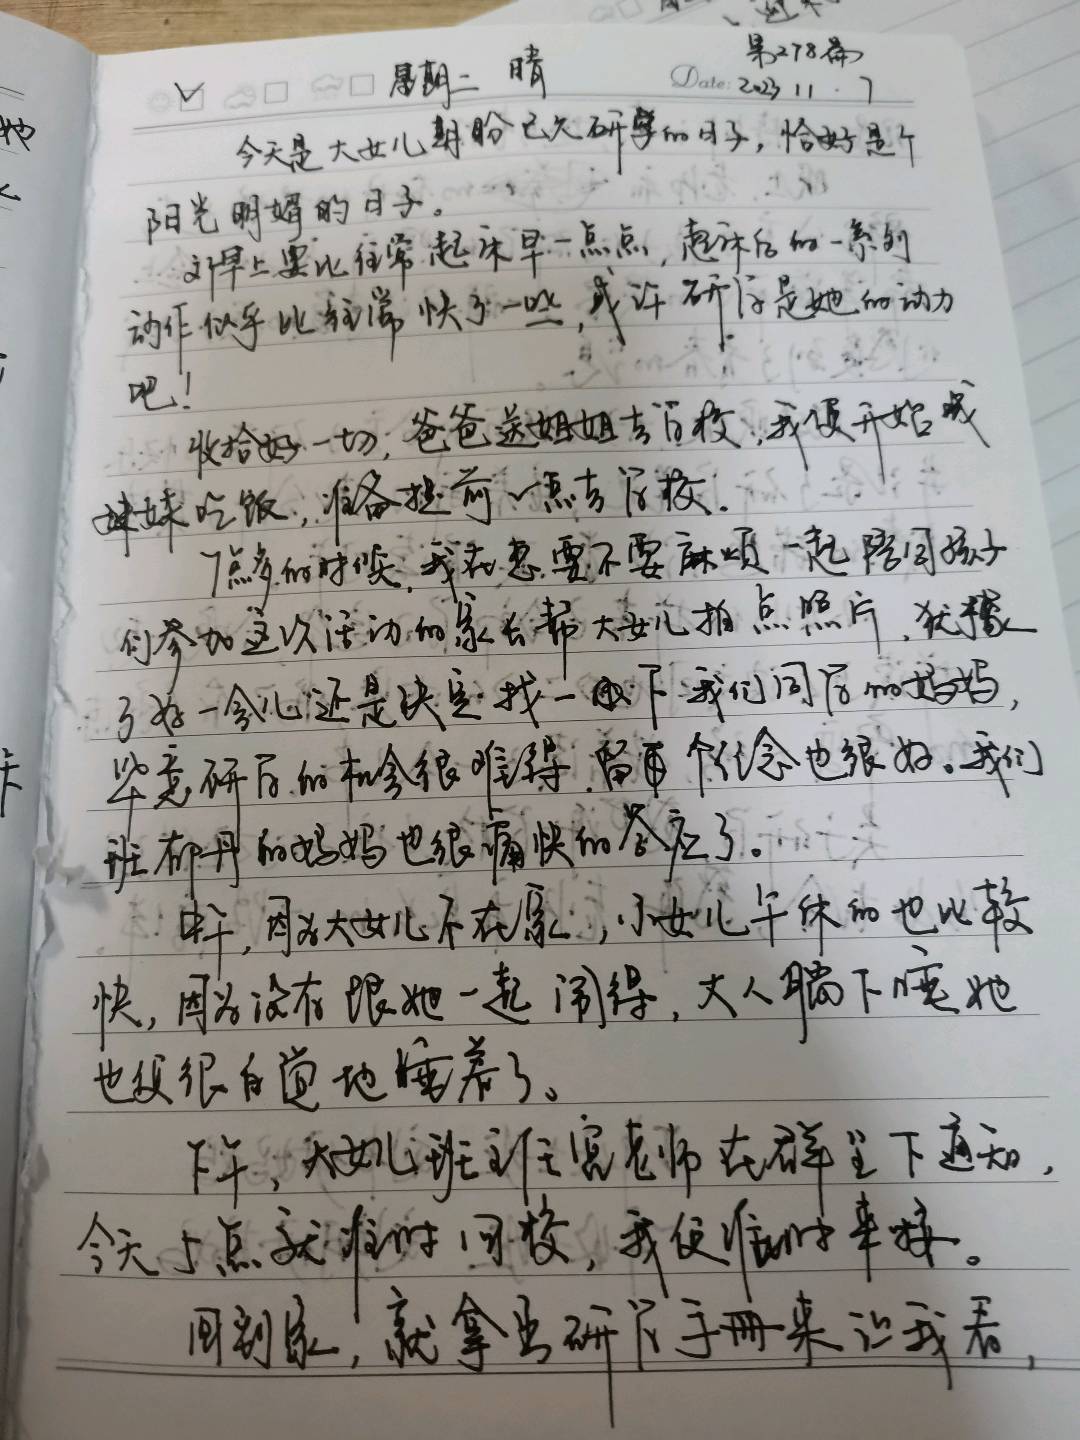 第278篇
星期二 晴 Date: 2023 11.7
今天是大女儿期盼已久研学的日子，恰好是个
阳光明媚的日子。
早上要比往常起床早一点点，起床后的一系列
动作似乎比往常快了一些，或许研学是她的动力
吧！
收拾好一切，爸爸送姐姐去学校，我便开始喊
妹妹吃饭，准备提前一点去学校。
7点多的时候，我在想要不要麻烦一起陪同孩子
们参加这次活动的家长帮大女儿拍点照片，犹豫
了好一会儿还是决定找一下我们同学的妈妈，
毕竟研学的机会很难得，留个纪念也很好。我们
班郁丹的妈妈也很痛快的答应了。
中午，因为大女儿不在家，小女儿午休的也比较
快，因为没有跟她一起闹得，大人躺下睡她
也便很自觉地睡着了。
下午，大女儿班主任老师在群里下通知，
今天5点准时回校，我便准时来接。
回到家，就拿出研学手册来让我看，